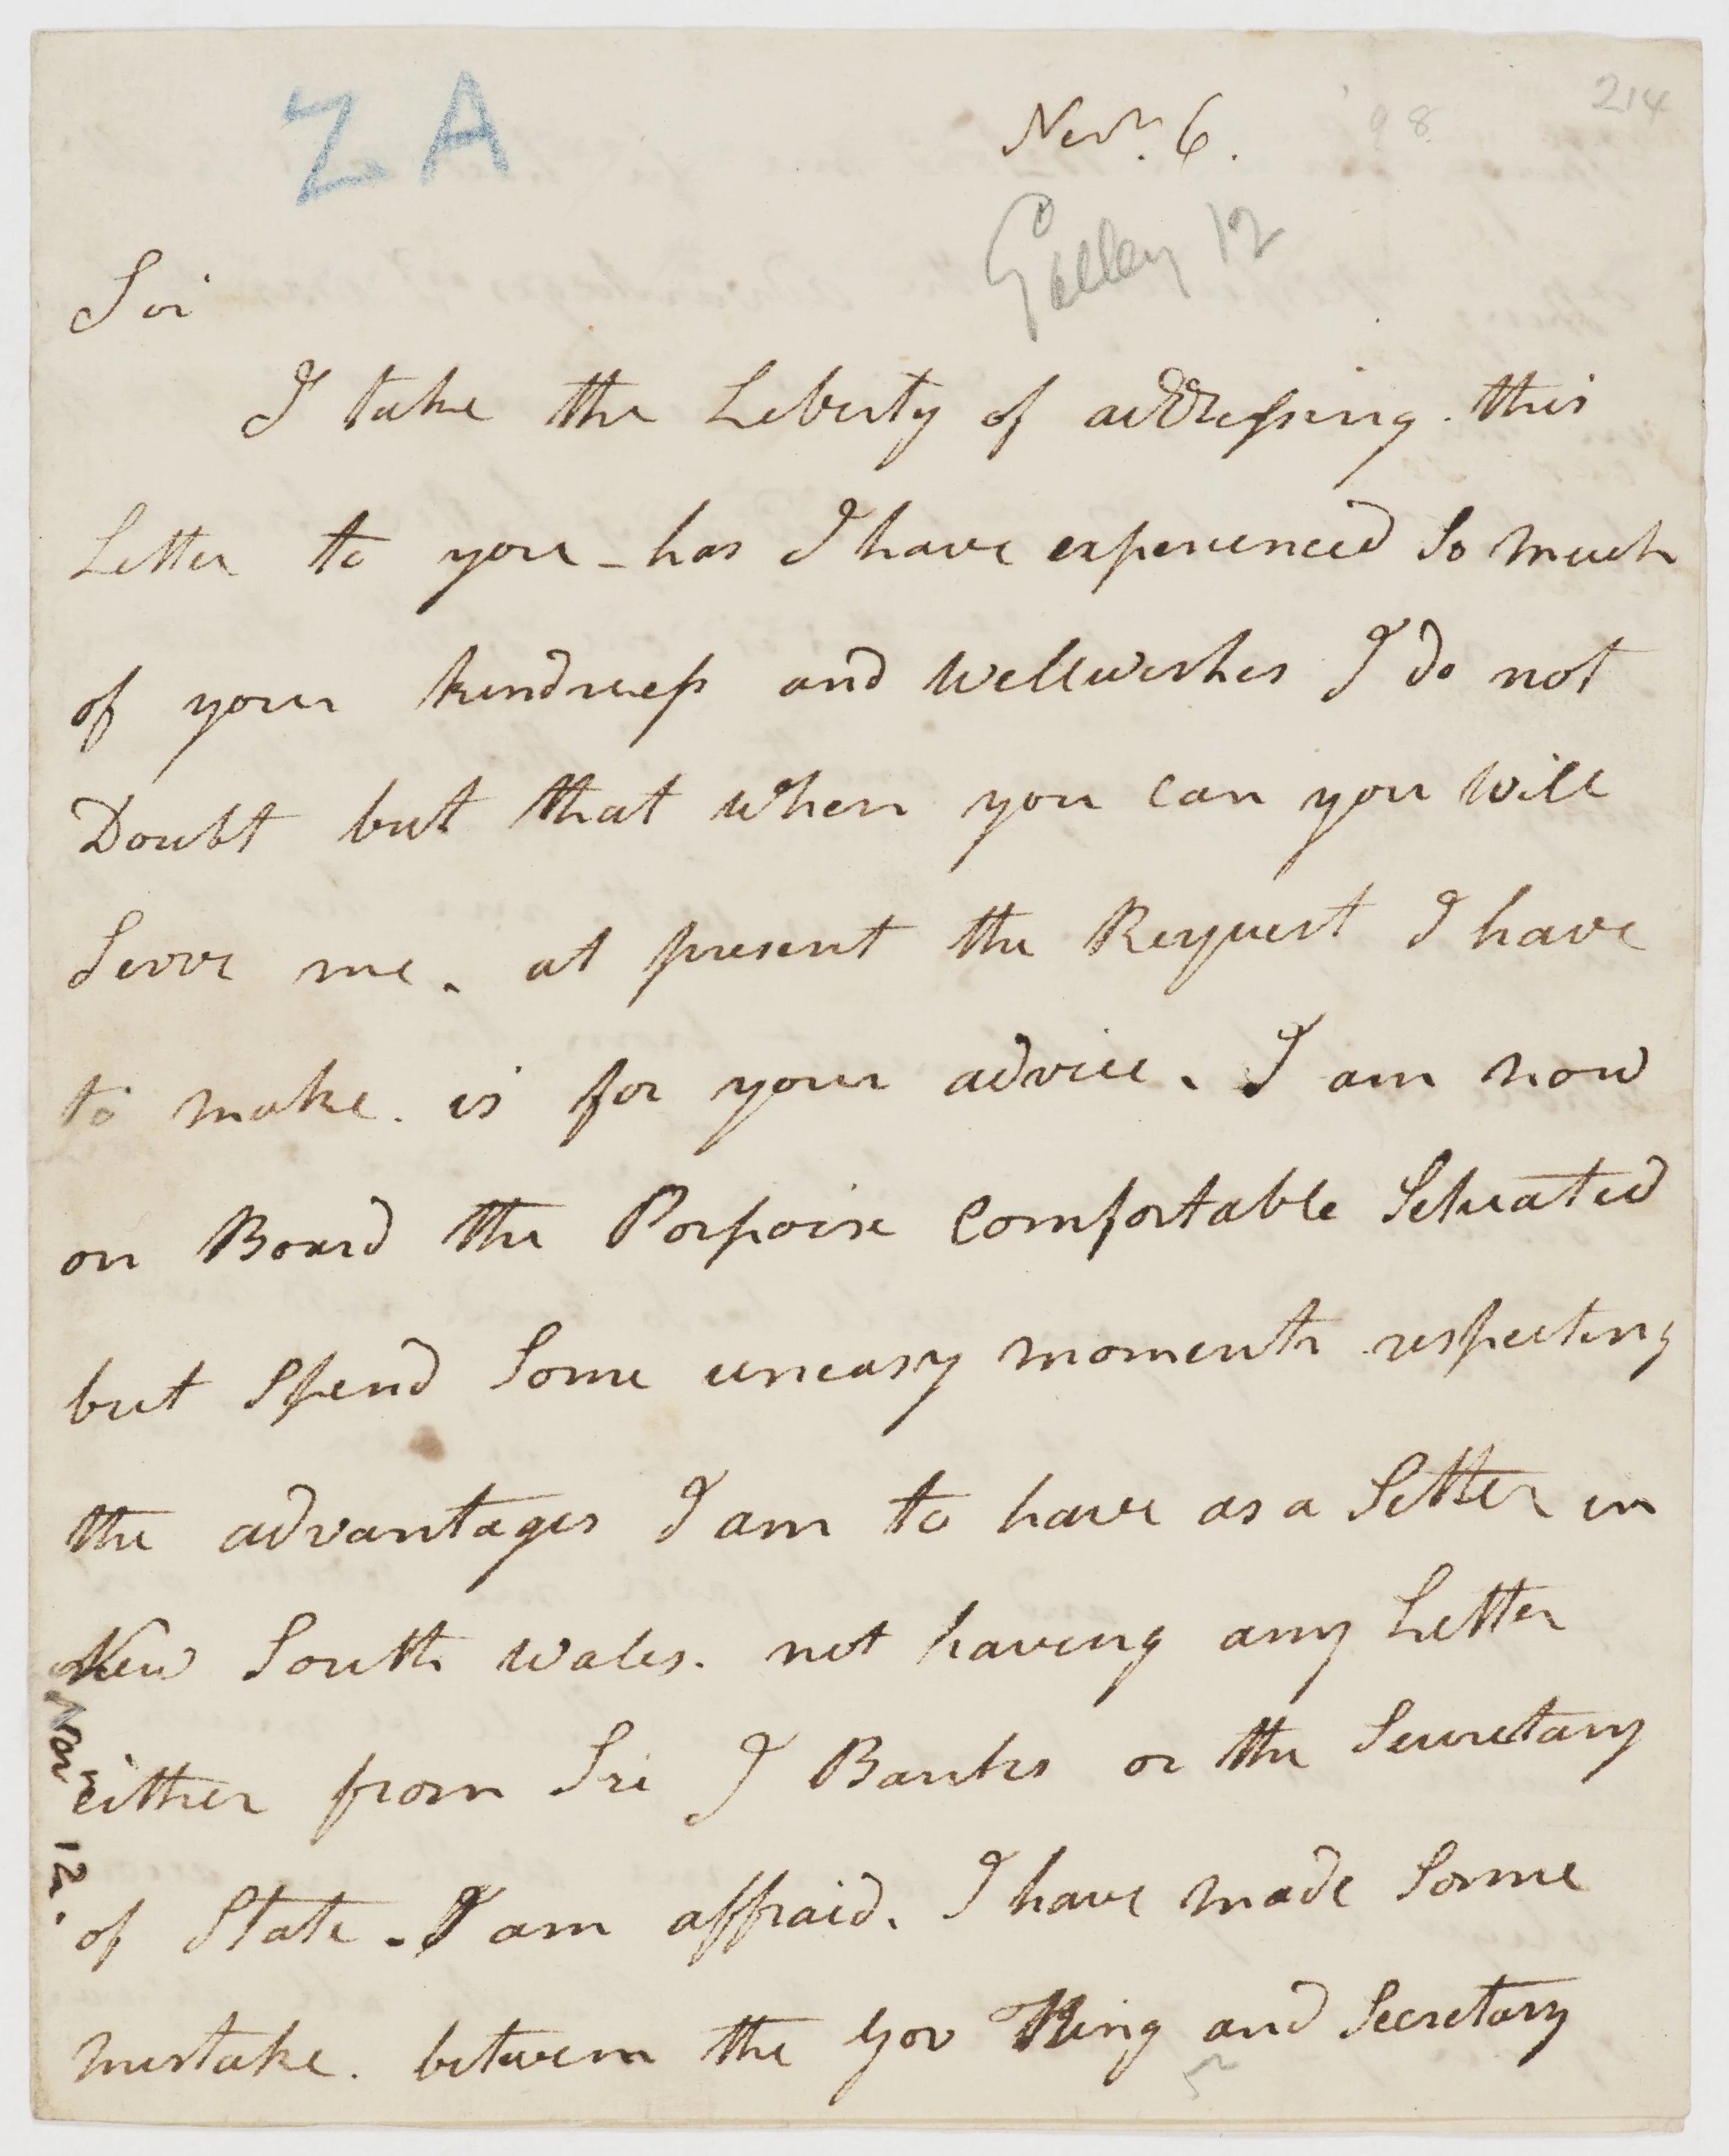 214
Z A
Novr. 6.
98
Galley 12
Sir
I take the Liberty of addressing this
Letter to you - has I have experienced So much
of your kindness and Wellwishes I do not
Doubt but that when you Can you Will
Serve me. at present the Request I have
to make. is for your advice. I am now
on Board the Porpoise Comfortable Setuated
but Spend Some uneasy moments respecting
the advantages I am to have as a Setter in
New South Wales. not having any Letter
either from Sir J Banks or the Secretary
of State. I am affraid. I have made Some
mistake. between the Gov King and Secretary
12.